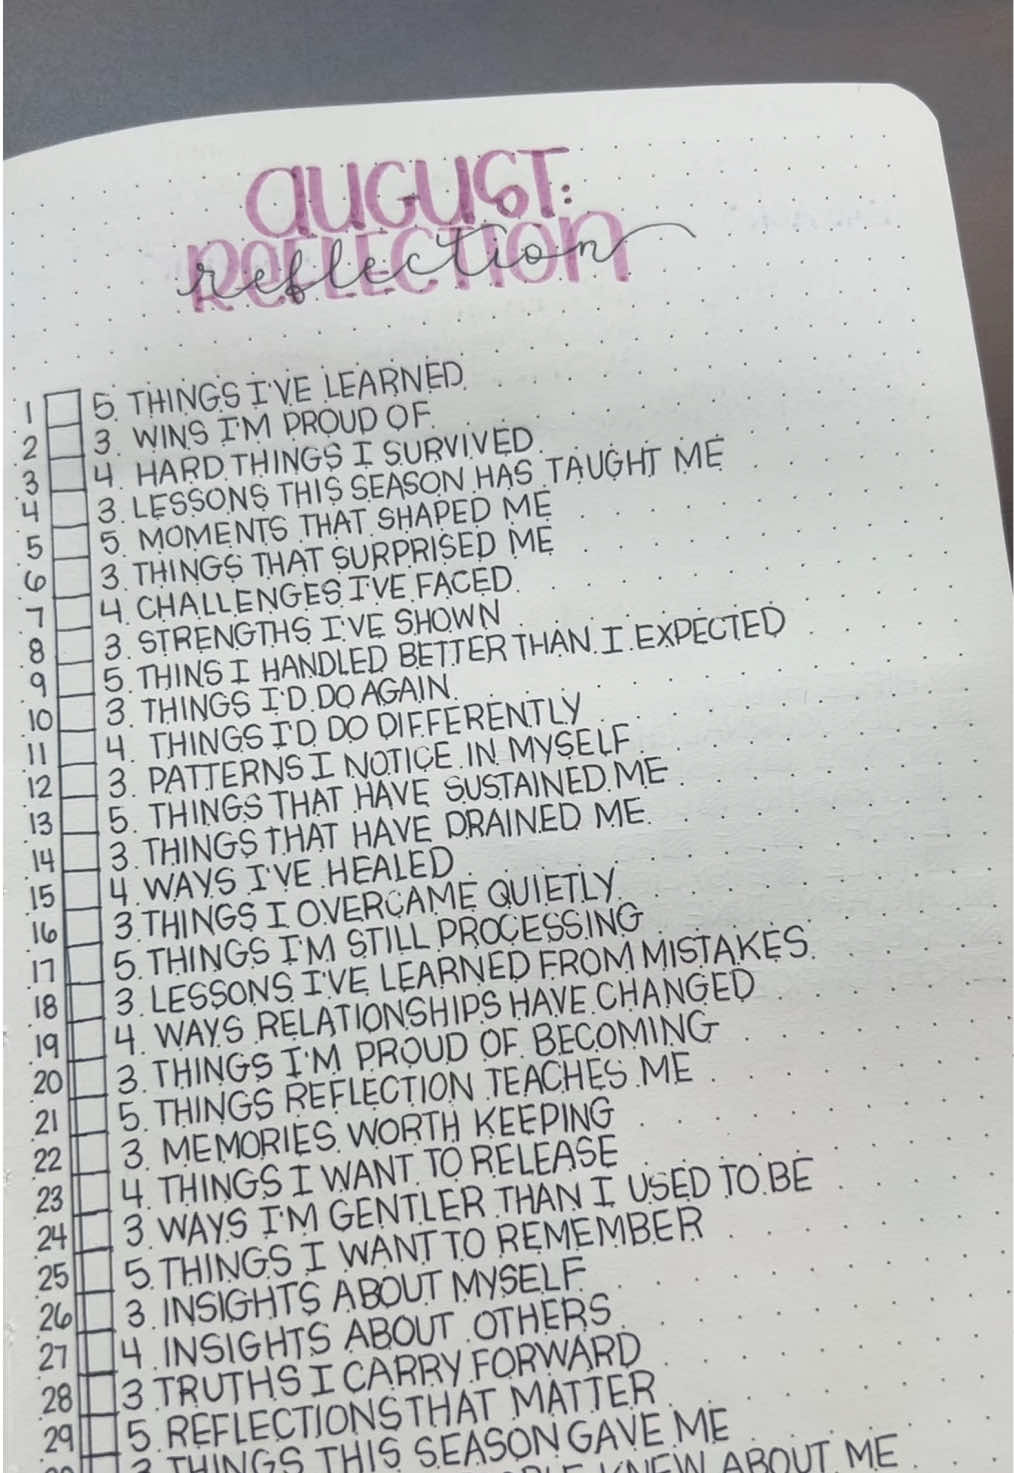 AUGUST:
REFLECTION
reflection
1 5 THINGS I'VE LEARNED
2 3 WINS I'M PROUD OF
3 4 HARD THINGS I SURVIVED
4 3 LESSONS THIS SEASON HAS TAUGHT ME
5 5 MOMENTS THAT SHAPED ME
6 3 THINGS THAT SURPRISED ME
7 4 CHALLENGES I'VE FACED
8 3 STRENGTHS I'VE SHOWN
9 5 THINS I HANDLED BETTER THAN I EXPECTED
10 3 THINGS I'D DO AGAIN
11 4 THINGS I'D DO DIFFERENTLY
12 3 PATTERNS I NOTICE IN MYSELF
13 5 THINGS THAT HAVE SUSTAINED ME
14 3 THINGS THAT HAVE DRAINED ME
15 4 WAYS I'VE HEALED
16 3 THINGS I OVERCAME QUIETLY
17 5 THINGS I'M STILL PROCESSING
18 3 LESSONS I'VE LEARNED FROM MISTAKES
19 4 WAYS RELATIONSHIPS HAVE CHANGED
20 3 THINGS I'M PROUD OF BECOMING
21 5 THINGS REFLECTION TEACHES ME
22 3 MEMORIES WORTH KEEPING
23 4 THINGS I WANT TO RELEASE
24 3 WAYS I'M GENTLER THAN I USED TO BE
25 5 THINGS I WANT TO REMEMBER
26 3 INSIGHTS ABOUT MYSELF
27 4 INSIGHTS ABOUT OTHERS
28 3 TRUTHS I CARRY FORWARD
29 5 REFLECTIONS THAT MATTER
3 THINGS THIS SEASON GAVE ME
KNEW ABOUT ME